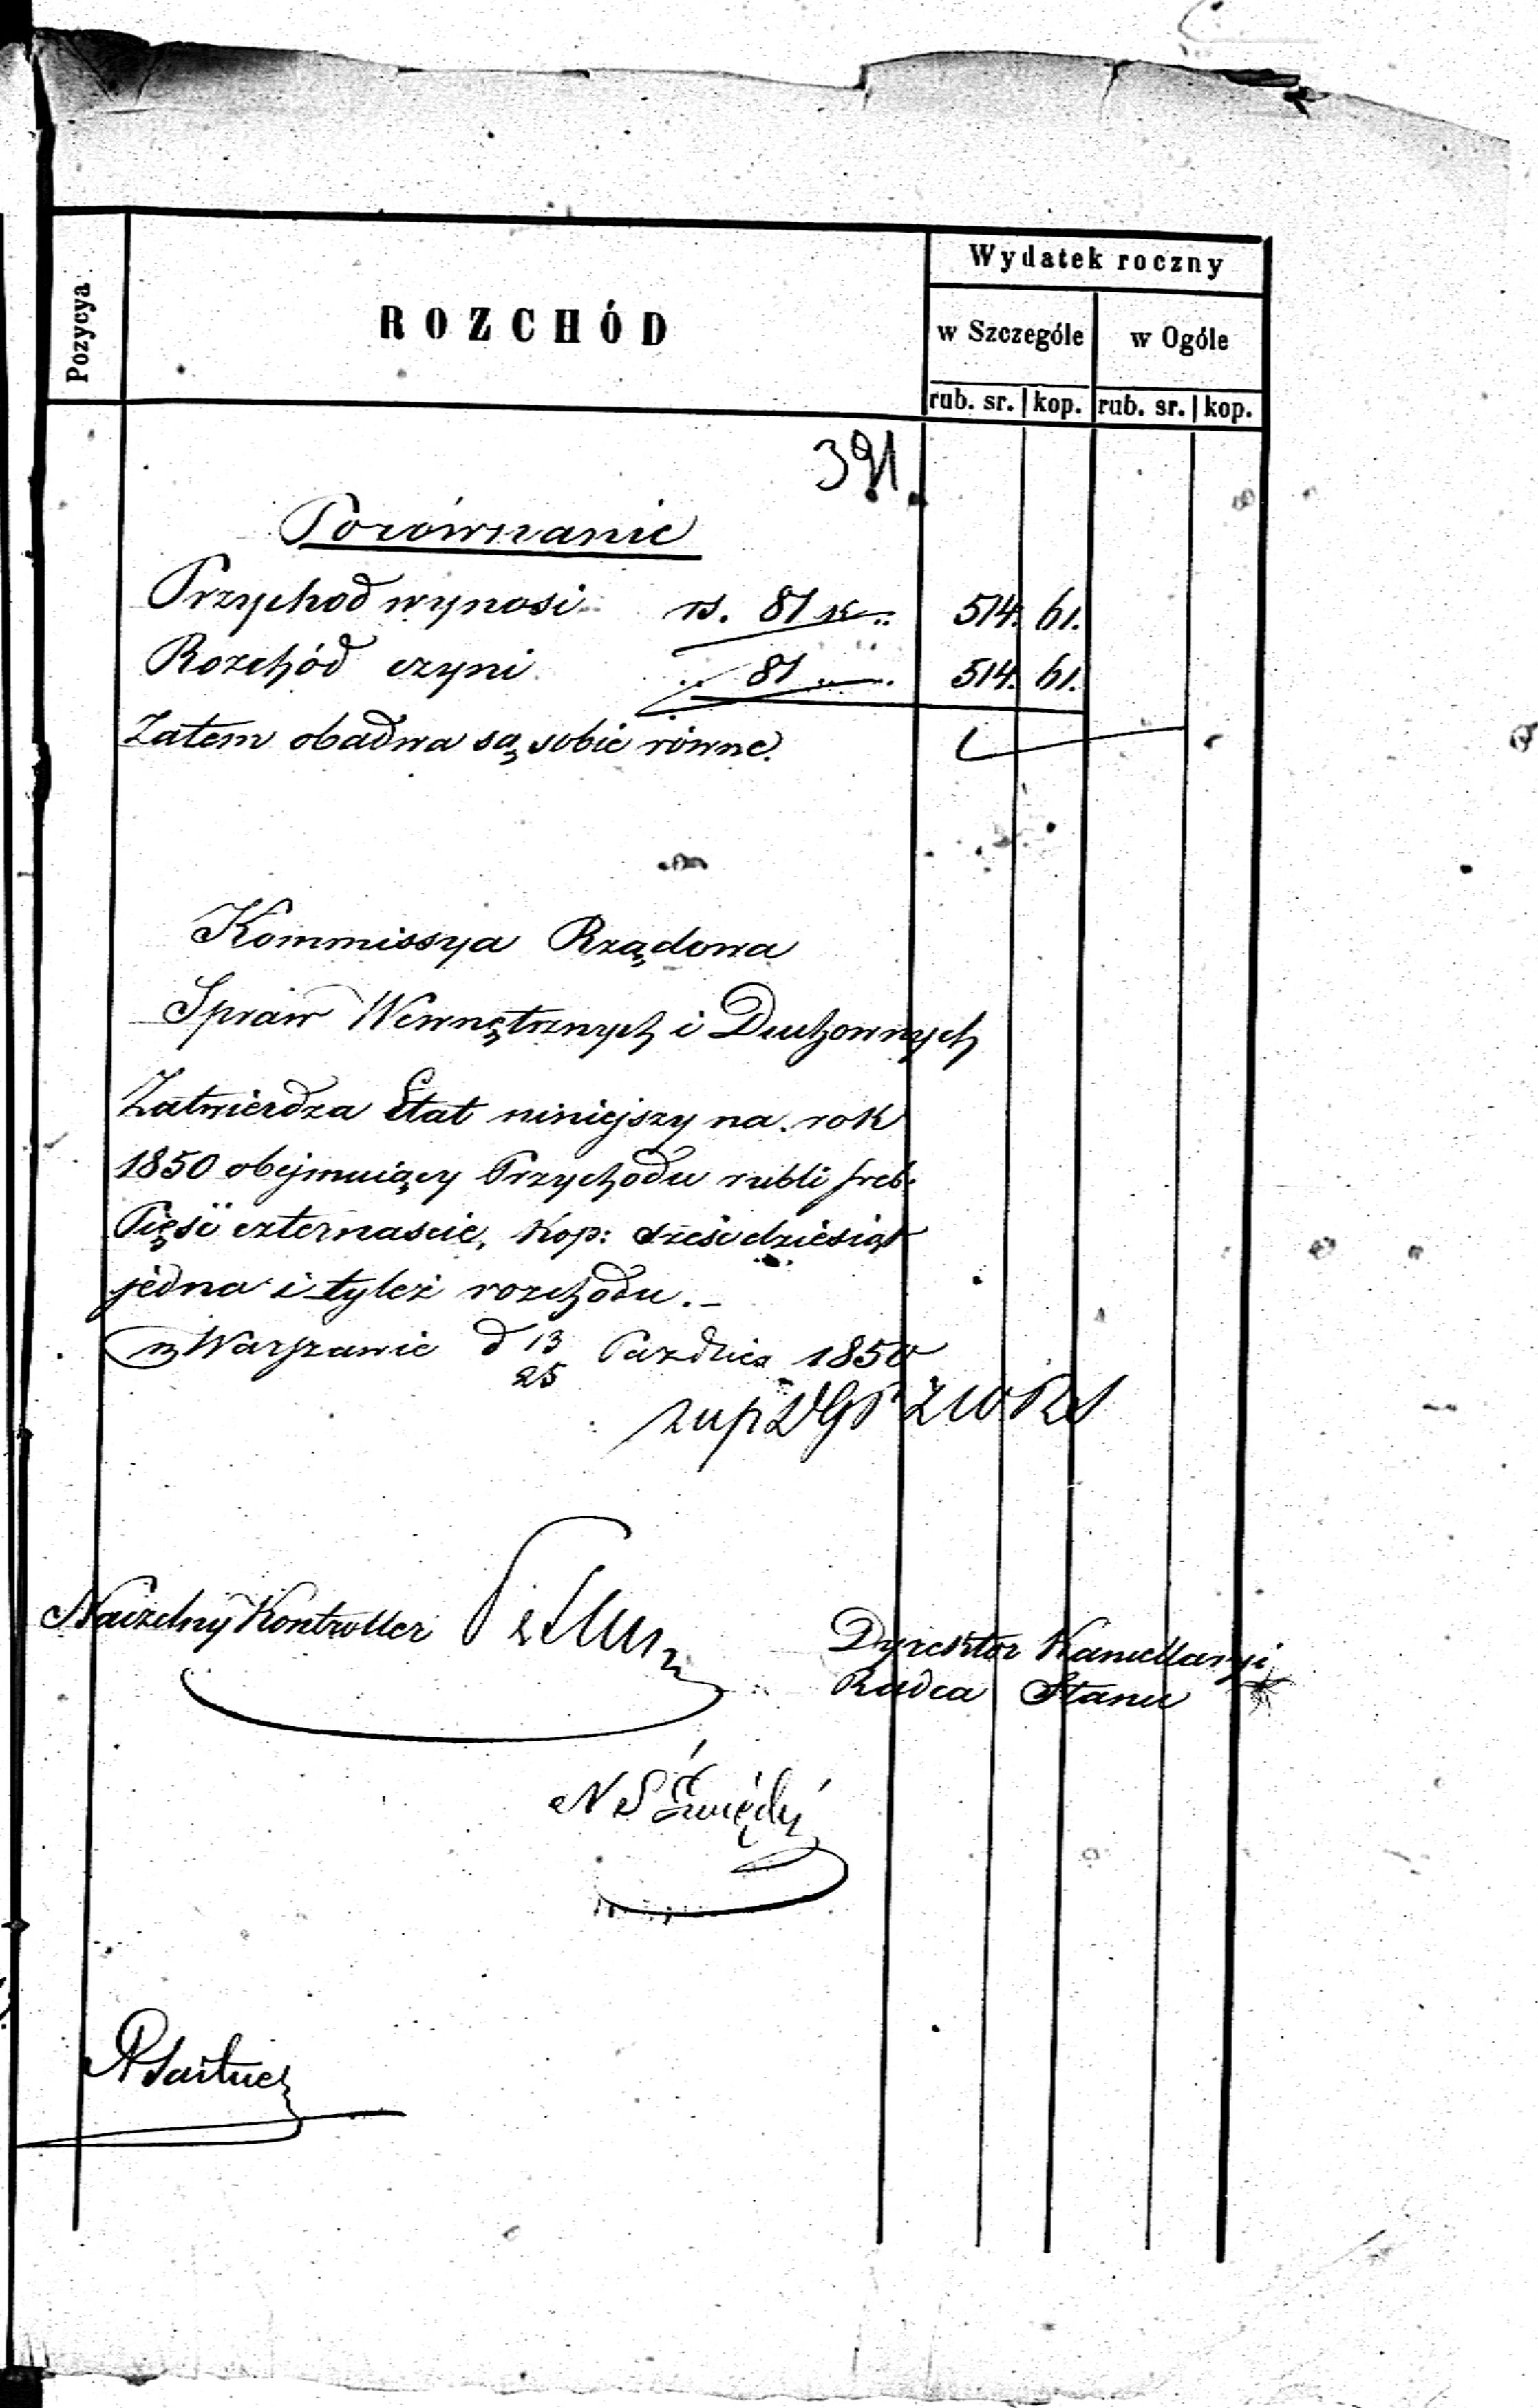 Pozycya
ROZCHÓD
Wydatek roczny
w Szczególe
w Ogóle
rub. sr. kop. rub. sr. kop.
391.
Porównanie
Przychod wynosi rs. 81 k 514. 61.
Rozchód czyni 81 514. 61.
Zatem obadwa są sobie równe.
Kommissya Rządowa
Spraw Wewnętrznych i Duchownych
Zatwierdza Etat niniejszy na rok
1850 obejmuiący Przychodu rubli sreb.
Pięść czternaście, Kop: sześćdziesiąt
jedna i tyleż rozchodu.
w Warszawie d 13/25 Paździer 1850
Naczelny Kontroller
Dyrektor Kancellaryi
Radca Stanu
N S